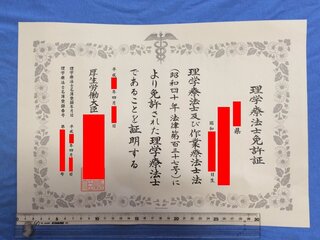 理学療法士免許証
県
昭和 日生
理学療法士及び作業療法士法
(昭和四十年法律第百三十七号)に
より免許された理学療法士
であることを証明する
平成 年四月 日
厚生労働大臣
理学療法士名簿登録年月日 平成 年四月 日
理学療法士名簿登録番号 第 号
5 10 15 20 25 30